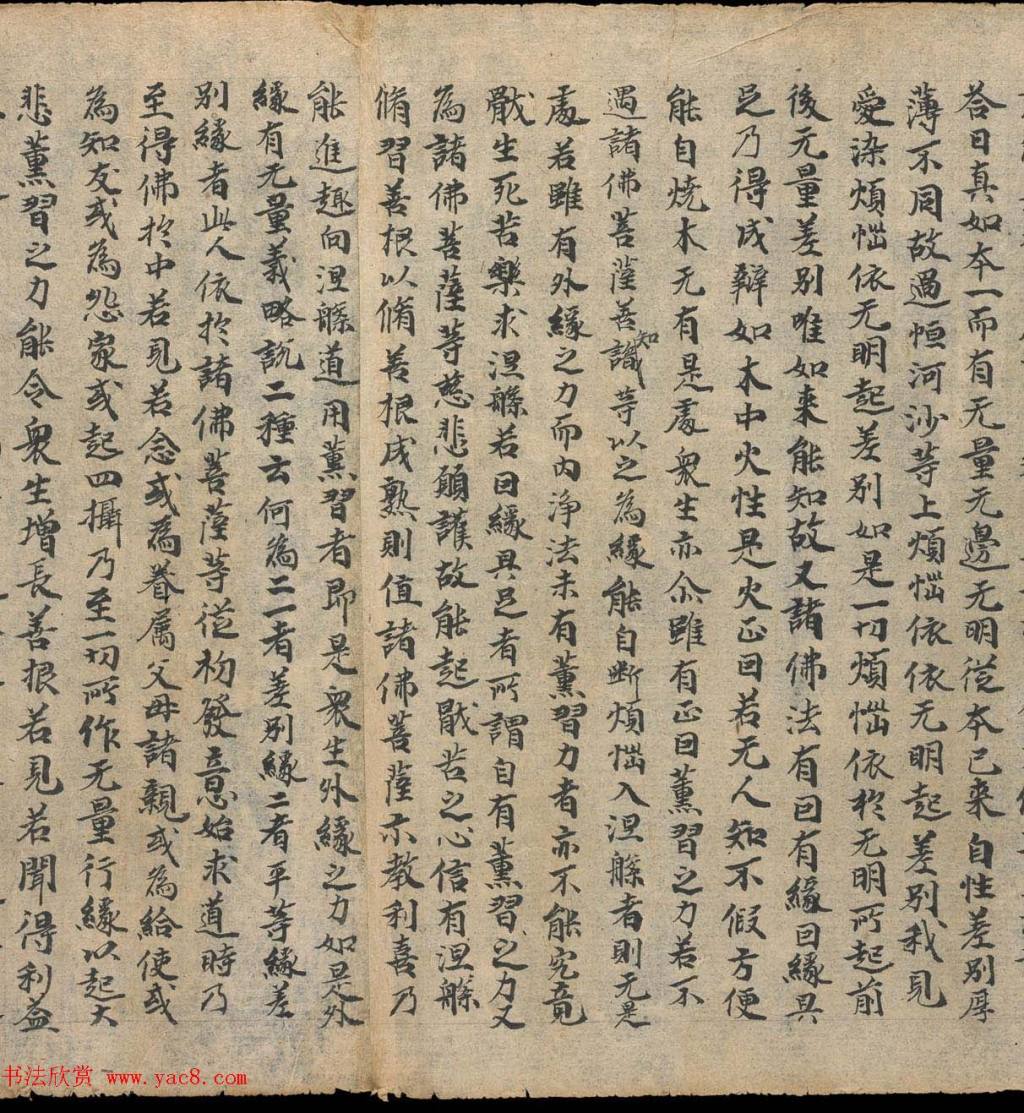 荅曰真如本一而有无量无邊无明從本已来自性差别厚
薄不同故過恒河沙等上煩惱依依无明起差别我見
愛染煩惱依无明起差别如是一切煩惱依於无明所起前
後无量差别唯如来能知故又諸佛法有因有緣因緣具
足乃得成辦如木中火性是火正因若无人知不假方便
能自燒木无有是處衆生亦尒雖有正因薰習之力若不
遇諸佛菩薩善知識等以之為緣能自斷煩惱入涅槃者則无是
處若雖有外緣之力而内浄法未有薰習力者亦不能究竟
猒生死苦樂求涅槃若因緣具足者所謂自有薰習之力又
為諸佛菩薩等慈悲願護故能起猒苦之心信有涅槃
脩習善根以脩善根成熟則值諸佛菩薩示教利喜乃
能進趣向涅槃道用薰習者即是衆生外緣之力如是外
緣有无量義略説二種云何為二一者差别緣二者平等緣差
别緣者此人依於諸佛菩薩等從初發意始求道時乃
至得佛於中若見若念或為眷属父母諸親或為給使或
為知友或為怨家或起四攝乃至一切所作无量行緣以起大
悲薰習之力能令衆生增長善根若見若聞得利益
书法欣赏 www.yac8.com